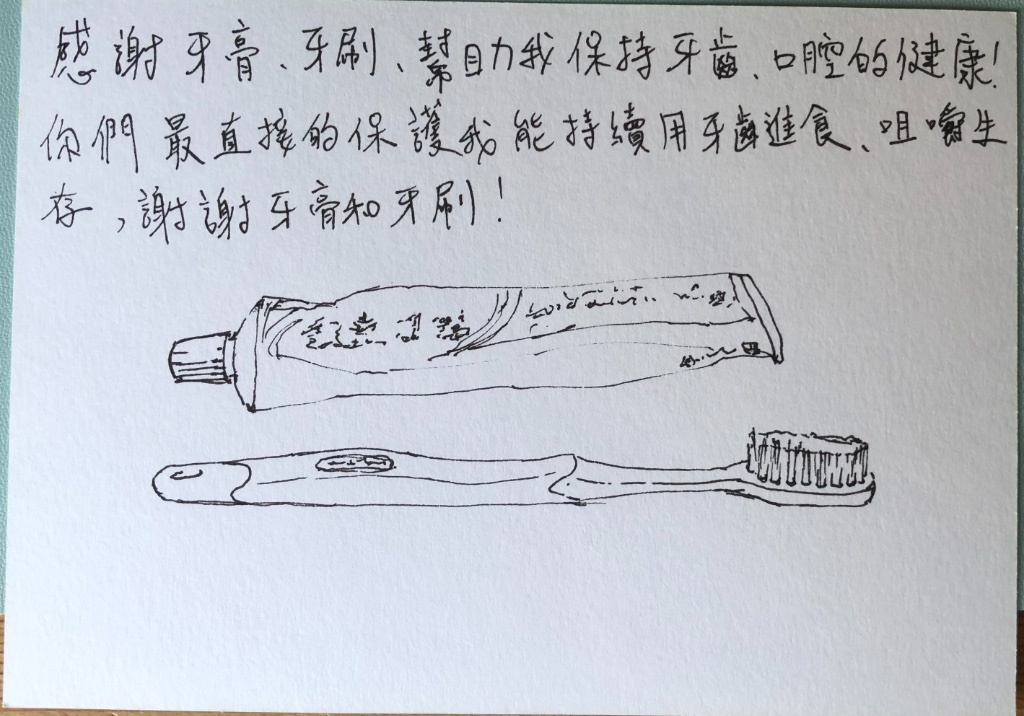 感謝牙膏、牙刷、幫助我保持牙齒、口腔的健康!
你們最直接的保護我能持續用牙齒進食、咀嚼生
存,謝謝牙膏和牙刷!